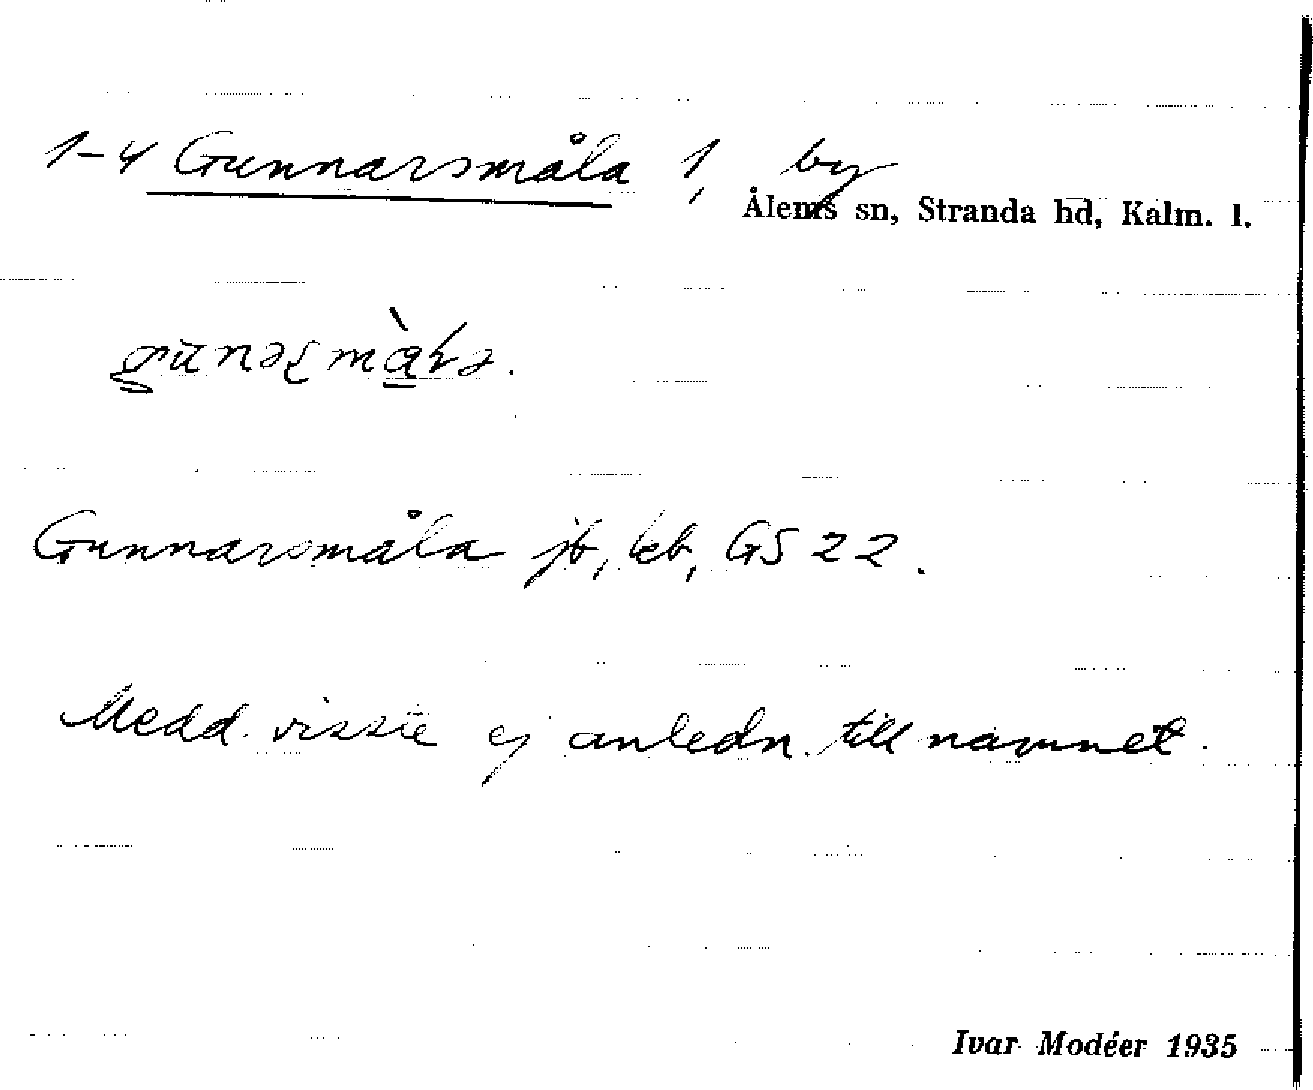 1-4 Gunnarsmåla 1, by
Ålems sn, Stranda hd, Kalm. l.
Gunnarsmåla jb, kb, GS 22.
Medd. visste ej anledn. till namnet.
Ivar Modéer 1935